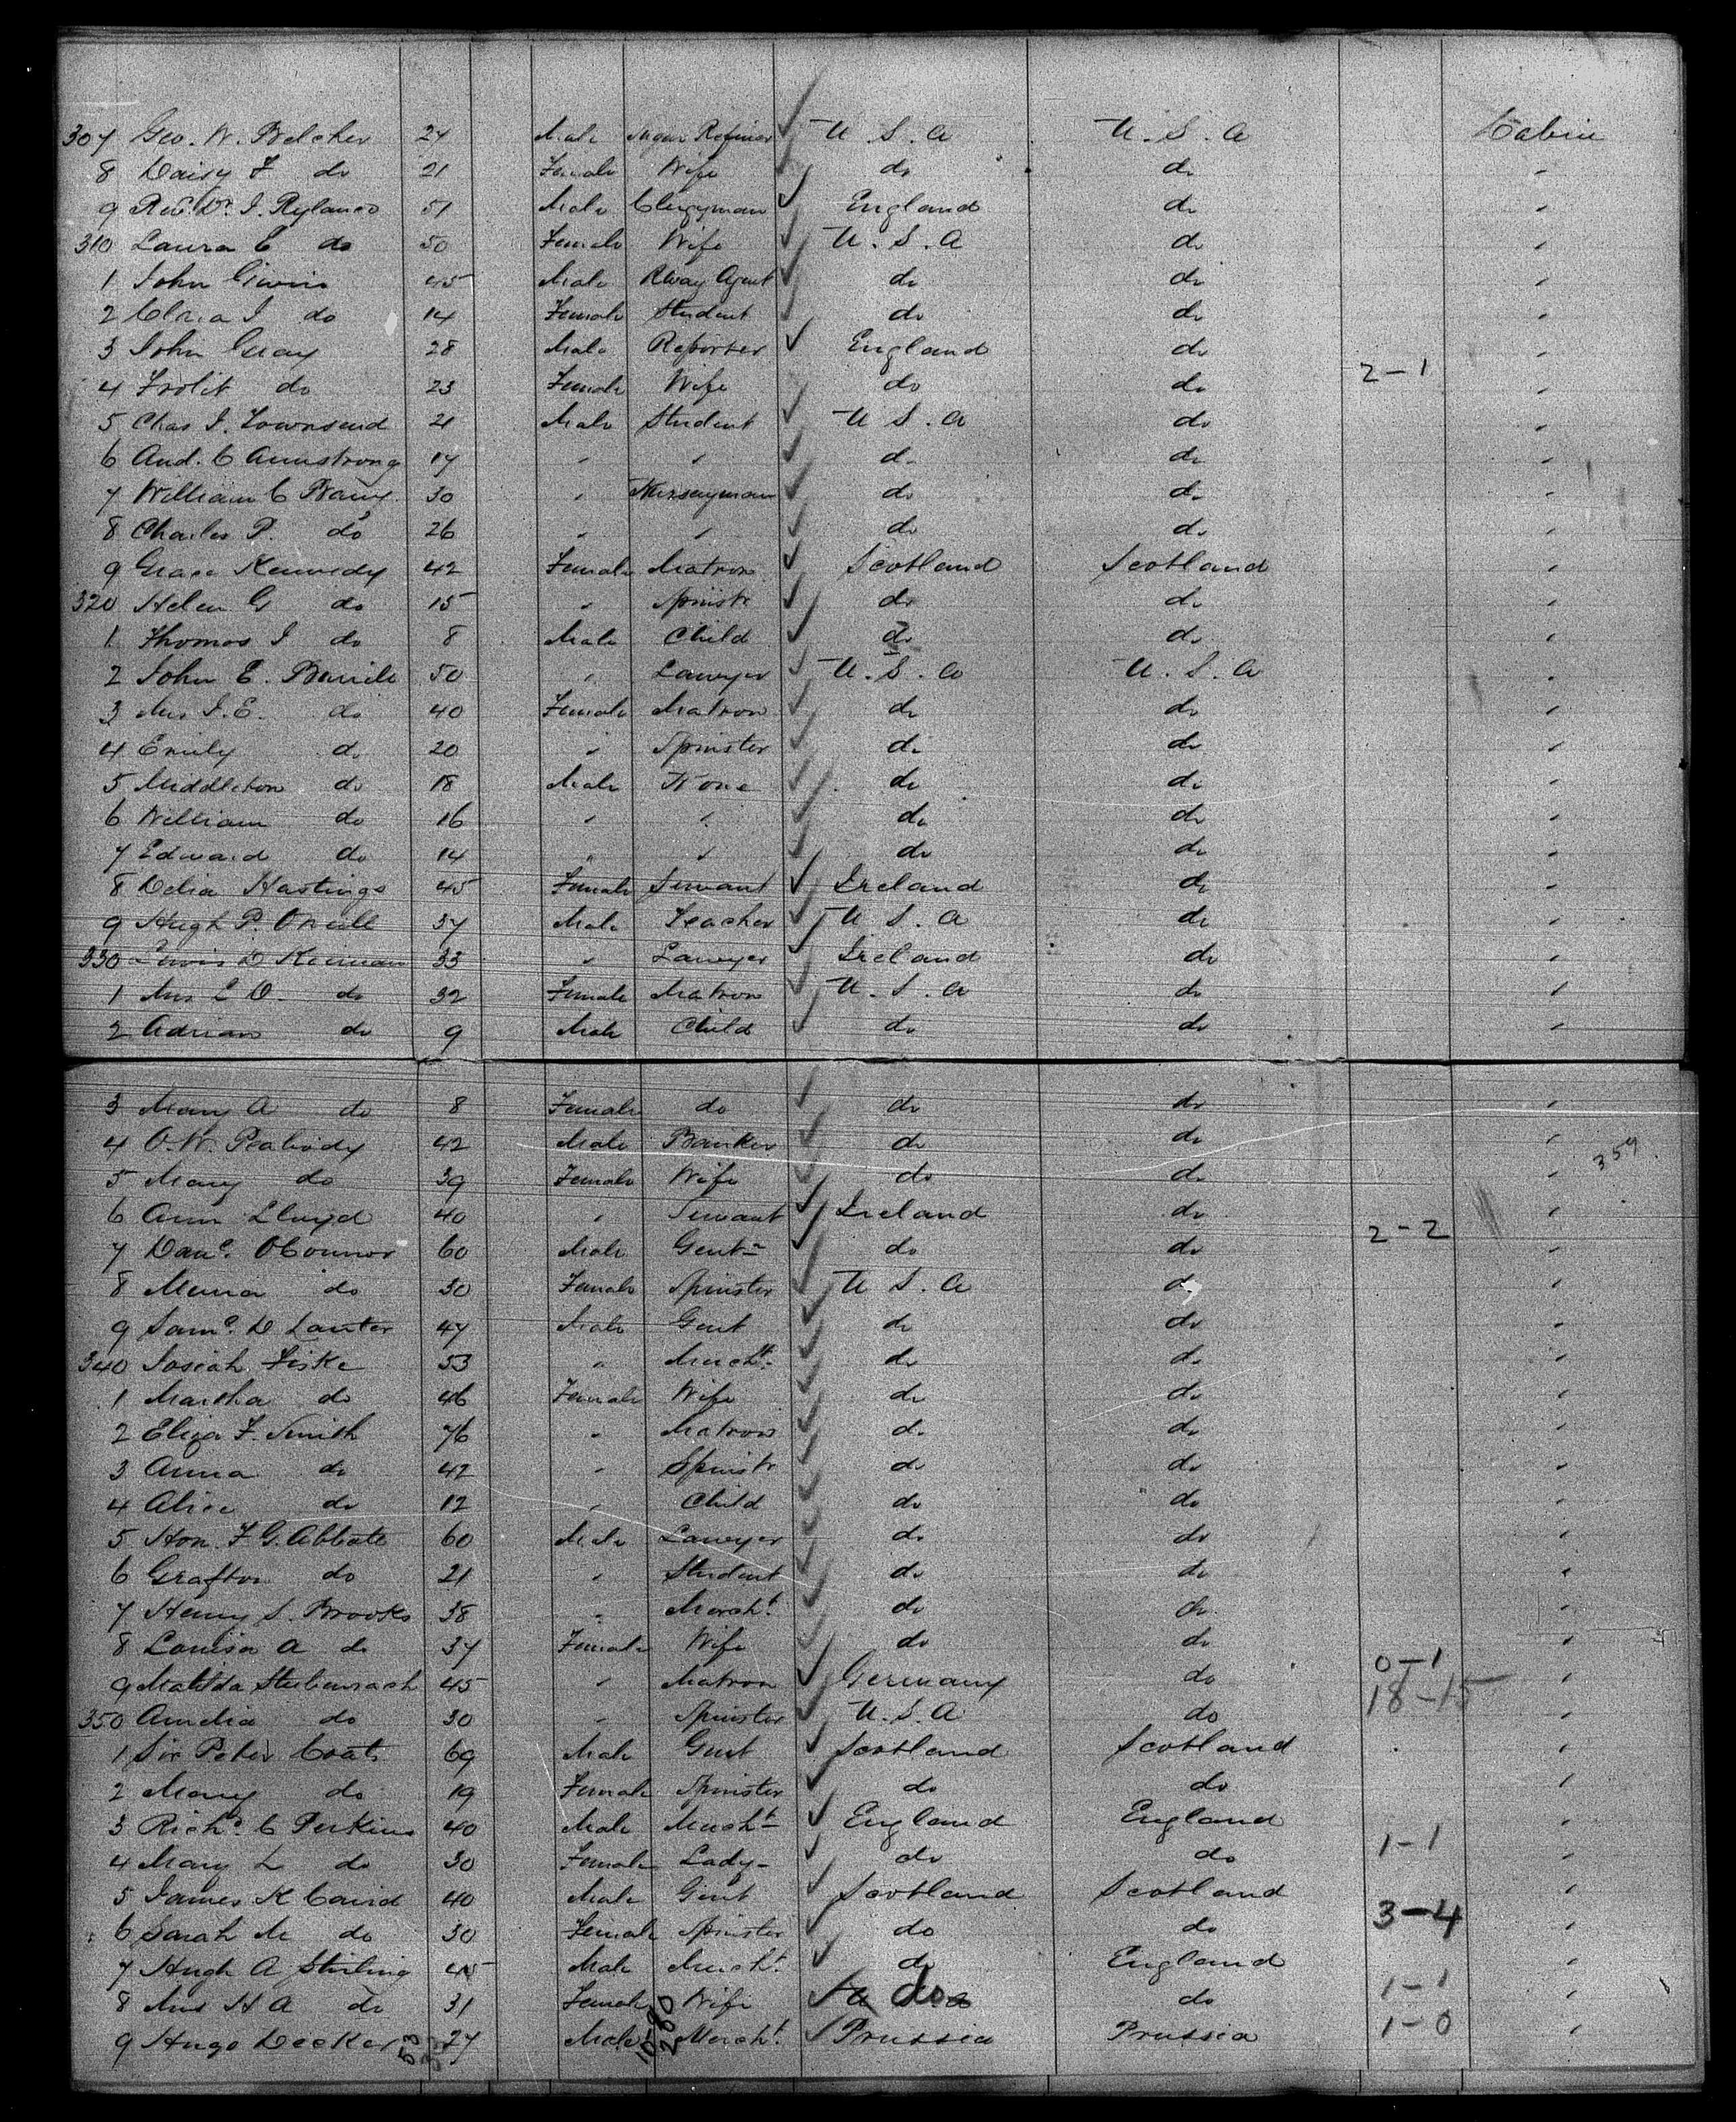 307 Geo. W. Belcher 24 Male Sugar Refiner U. S. A U. S. A Cabin
8 Daisy F do 21 Female Wife do do "
9 Rev. Dr. J. Rylance 51 Male Clergyman England do "
310 Laura C do 50 Female Wife U. S. A do "
1 John 45 Male Rway Agent do do "
2 J do 14 Female Student do do "
3 John Gray 28 Male Reporter England do "
4 do 23 Female Wife do do 2-1 "
5 Chas J. Townsend 21 Male Student U S. A do "
6 And. C Armstrong 17 " " do do "
7 William C Barry 30 " Nurseryman do do "
8 Charles P. do 26 " " do do "
9 Grace Kennedy 42 Female Matron Scotland Scotland "
320 Helen G do 15 " Spinstr do do "
1 Thomas J do 8 Male Child do do "
2 John E. 50 " Lawyer U. S. A U. S. A "
3 Mrs J. E. do 40 Female Matron do do "
4 Emily do 20 " Spinster do do "
5 Middleton do 18 Male None do do "
6 William do 16 " " do do "
7 Edward do 14 " " do do "
8 Delia Hastings 45 Female Servant Ireland do "
9 Hugh P. ONeill 37 Male Teacher U S. A do "
330 D Kiernan 33 " Lawyer Ireland do "
1 Mrs L D. do 32 Female Matron U. S. A do "
2 Adrian do 9 Male Child do do "
3 Mary A do 8 Female do do do "
4 O. W. Peabody 42 Male Banker do do "
359
5 Mary do 39 Female Wife do do "
6 Ann Lloyd 40 " Servant Ireland do "
7 Danl. OConnor 60 Male Gentn do do 2-2 "
8 Maria do 30 Female Spinster U S. A do "
9 Saml. D Lauter 47 Male Gent do do "
340 Josiah Fiske 53 " Mercht. do do "
1 Martha do 46 Female Wife do do "
2 Eliza F. Smith 76 " Matron do do "
3 Anna do 42 " Spinstr do do "
4 Alice do 12 " Child do do "
5 Hon. F G. Abbate 60 Male Lawyer do do "
6 Grafton do 21 " Student do do "
7 Henry S. Brooks 38 " Mercht. do do "
8 Louisa A do 37 Female Wife do do "
9 Matilda 45 " Matron Germany do 0-1 "
350 Amelia do 30 " Spinster U. S. A do 18-15 "
1 Sir Peter Coats 69 Male Gent Scotland Scotland "
2 Mary do 19 Female Spinster do do "
3 Richd. C Perkins 40 Male Mercht England England "
4 Mary L do 30 Female Lady do do 1-1 "
5 James K Caird 40 Male Gent Scotland Scotland "
6 Sarah M do 30 Female Spinster do do 3-4 "
7 Hugh A Stirling 45 Male Mercht. do England "
8 Mrs H A do 31 Female Wife do do 1-1 "
9 Hugo Decker 27 Male Mercht. Prussia Prussia 1-0 "
53